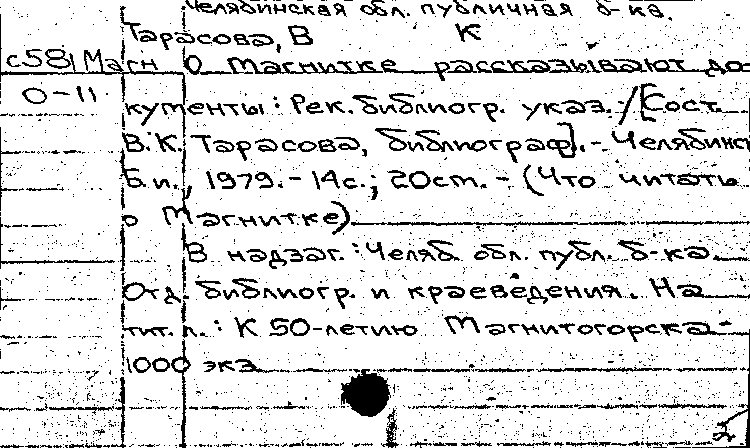 Челябинская обл. публичная б-ка.
Тарасова, В К
с58 Магн О Магнитке рассказывают до-
О-11 кументы: Рек. библиогр. указ. / [Сост.
В.К. Тарасова, библиограф]. - Челябинск
Б.и., 1979. - 14с.; 20см. - (Что читать
о Магнитке)
В надзаг.: Челяб. обл. публ. б-ка.
Отд. библиогр. и краеведения. На
тит. л.: К 50-летию Магнитогорска -
1000 экз